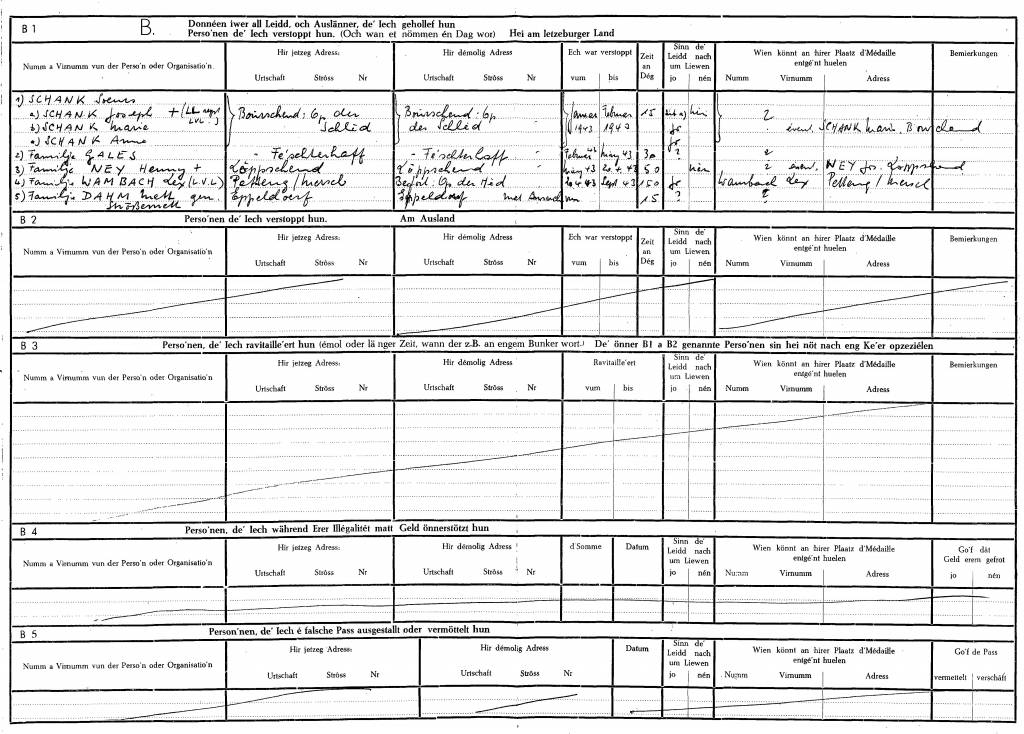 B 1
B.
Donnéen iwer all Leidd, och Auslänner, de' Iech gehollef hun
Perso'nen de' Iech verstoppt hun. (Och wan et nömmen én Dag wor) Hei am letzeburger Land
Numm a Virnumm vun der Perso'n oder Organisatio'n.
Hir jetzeg Adress:
Hir démolig Adress
Ech war verstoppt
Zeit an Dég
Sinn de' Leidd nach um Liewen
Wien könnt an hirer Plaatz d'Médaille entgé'nt huelen
Bemierkungen
Urtschaft Ströss Nr
Urtschaft Ströss Nr
vum bis
jo nén
Numm Virnumm Adress
1) SCHANK
a) SCHANK Joseph +
b) SCHANK Marie
c) SCHANK Anne
Bourscheid: der Schlèd
Bourscheid: der Schlèd
Januar 1943 Februar 1943 15
2
event. SCHANK Marie
2) Familje GALES - Féschterhaff - Féschterhaff May 43 30 ?
3) Familje NEY Henny + Löppschend Löppschend May 43 50 nén 2 event. NEY
4) Familje WAMBACH Lex (L.V.L) Petteng/Miersch Sept 43 150 Jo Wambach Lex Petteng/Miersch
5) Familje DAHM Eppeldorf Eppeldorf 15 ?
B 2
Perso'nen de' Iech verstoppt hun.
Am Ausland
Numm a Virnumm vun der Perso'n oder Organisatio'n
Hir jetzeg Adress:
Hir démolig Adress
Ech war verstoppt
Zeit an Dég
Sinn de' Leidd nach um Liewen
Wien könnt an hirer Plaatz d'Médaille entgé'nt huelen
Bemierkungen
Urtschaft Ströss Nr
Urtschaft Ströss Nr
vum bis
jo nén
Numm Virnumm Adress
B 3
Perso'nen, de' Iech ravitaille'ert hun (émol oder länger Zeit, wann der z.B. an engem Bunker wort.) De' önner B1 a B2 genannte Perso'nen sin hei nöt nach eng Ke'er opzeziélen
Numm a Virnumm vun der Perso'n oder Organisatio'n
Hir jetzeg Adress:
Hir démolig Adress
Ravitaille'ert
Sinn de' Leidd nach um Liewen
Wien könnt an hirer Plaatz d'Médaille entgé'nt huelen
Bemierkungen
Urtschaft Ströss Nr
Urtschaft Ströss Nr
vum bis
jo nén
Numm Virnumm Adress
B 4
Perso'nen, de' Iech während Erer Illégalitét matt Geld önnerstötzt hun
Numm a Virnumm vun der Perso'n oder Organisatio'n
Hir jetzeg Adress:
Hir démolig Adress
d'Somme
Datum
Sinn de' Leidd nach um Liewen
Wien könnt an hirer Plaatz d'Médaille entgé'nt huelen
Go'f dât Geld erem gefrot
Urtschaft Ströss Nr
Urtschaft Ströss Nr
jo nén
Numm Virnumm Adress
jo nén
B 5
Person'nen, de' Iech é falsche Pass ausgestallt oder vermöttelt hun
Numm a Virnumm vun der Perso'n oder Organisatio'n
Hir jetzeg Adress:
Hir démolig Adress
Datum
Sinn de' Leidd nach um Liewen
Wien könnt an hirer Plaatz d'Médaille entgé'nt huelen
Go'f de Pass
Urtschaft Ströss Nr
Urtschaft Ströss Nr
jo nén
Numm Virnumm Adress
vermettelt verschâft